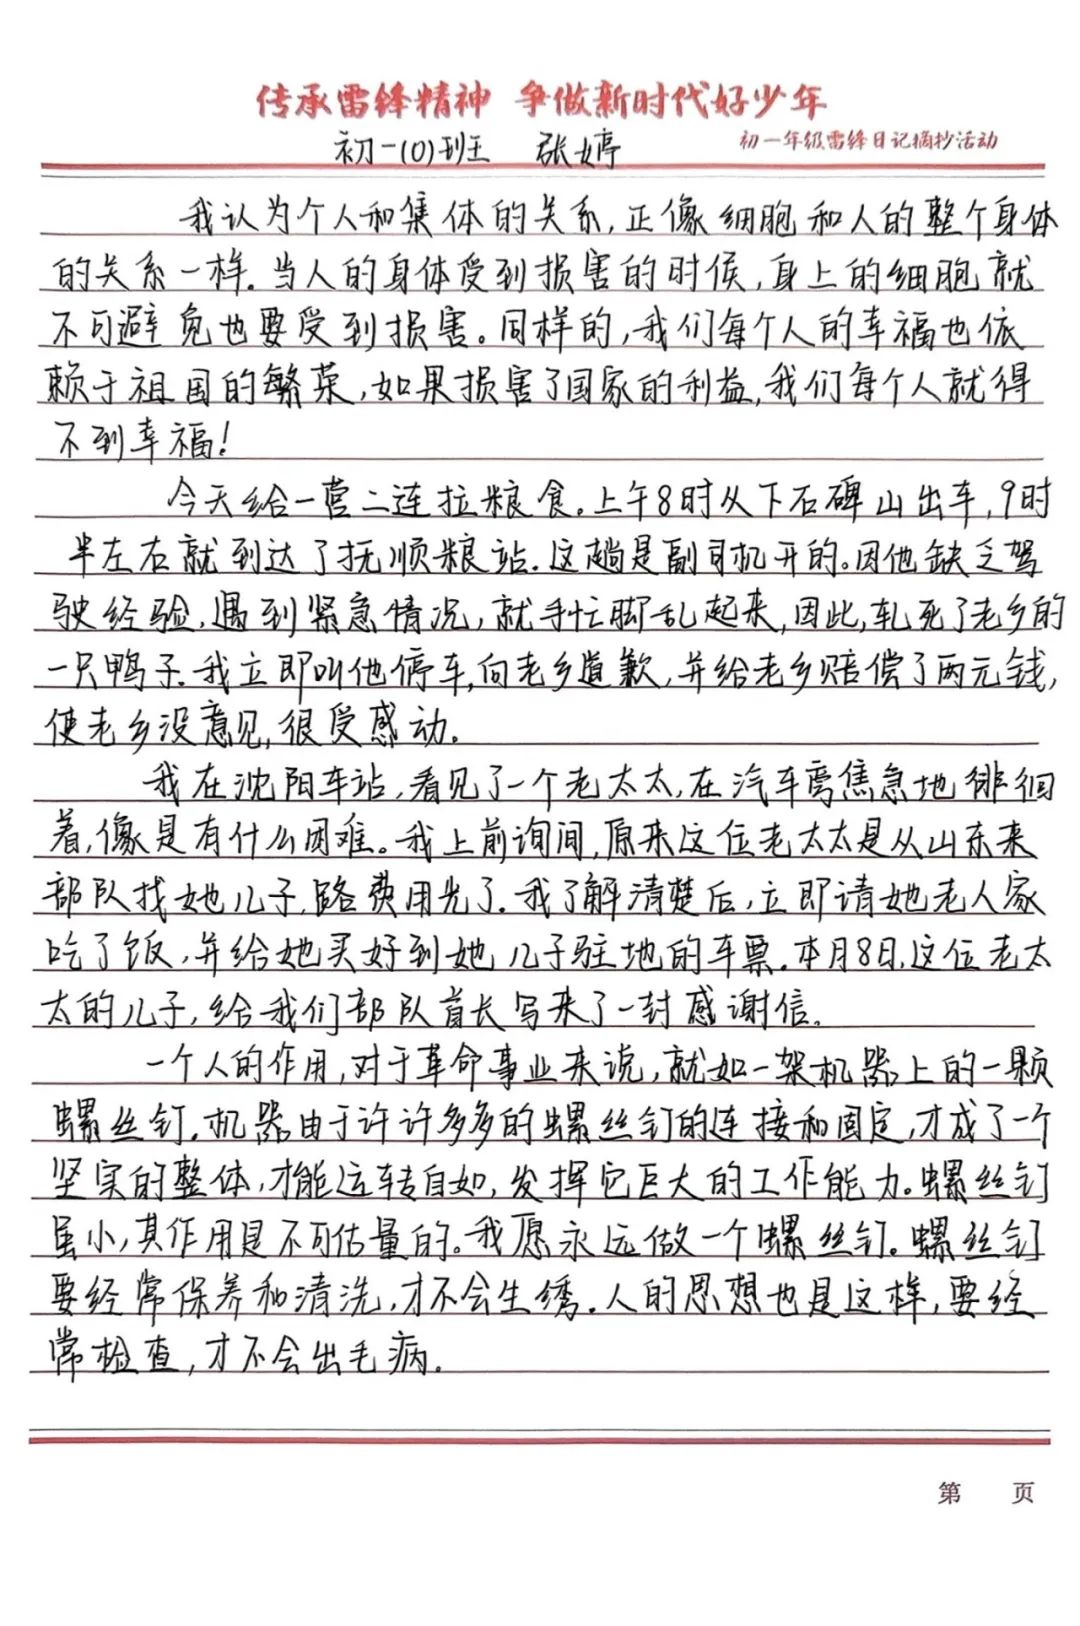 传承雷锋精神 争做新时代好少年
初一(10)班 张婷 初一年级雷锋日记摘抄活动
我认为个人和集体的关系,正像细胞和人的整个身体
的关系一样.当人的身体受到损害的时候,身上的细胞就
不可避免也要受到损害。同样的,我们每个人的幸福也依
赖于祖国的繁荣,如果损害了国家的利益,我们每个人就得
不到幸福!
今天给一营二连拉粮食。上午8时从下石碑山出车,9时
半左右就到达了抚顺粮站.这趟是副司机开的。因他缺乏驾
驶经验,遇到紧急情况,就手忙脚乱起来,因此,轧死了老乡的
一只鸭子.我立即叫他停车,向老乡道歉,并给老乡赔偿了两元钱,
使老乡没意见,很受感动.
我在沈阳车站,看见了一个老太太,在汽车旁焦急地徘徊
着,像是有什么困难。我上前询问,原来这位老太太是从山东来
部队找她儿子,路费用光了.我了解清楚后,立即请她老人家
吃了饭,并给她买好到她儿子驻地的车票.本月8日,这位老太
太的儿子,给我们部队首长写来了一封感谢信.
一个人的作用,对于革命事业来说,就如一架机器上的一颗
螺丝钉.机器由于许许多多的螺丝钉的连接和固定,才成了一个
坚实的整体,才能运转自如,发挥它巨大的工作能力。螺丝钉
虽小,其作用是不可估量的。我愿永远做一个螺丝钉.螺丝钉
要经常保养和清洗,才不会生绣.人的思想也是这样,要经
常检查,才不会出毛病.
第 页